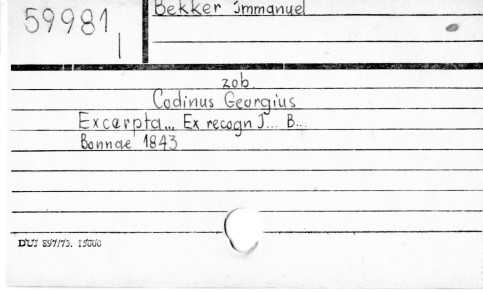 59981
I
Bekker Immanuel
zob.
Codinus Georgius
Excerpta... Ex recogn I... B...
Bonnae 1843
DUJ 897/73. 15000